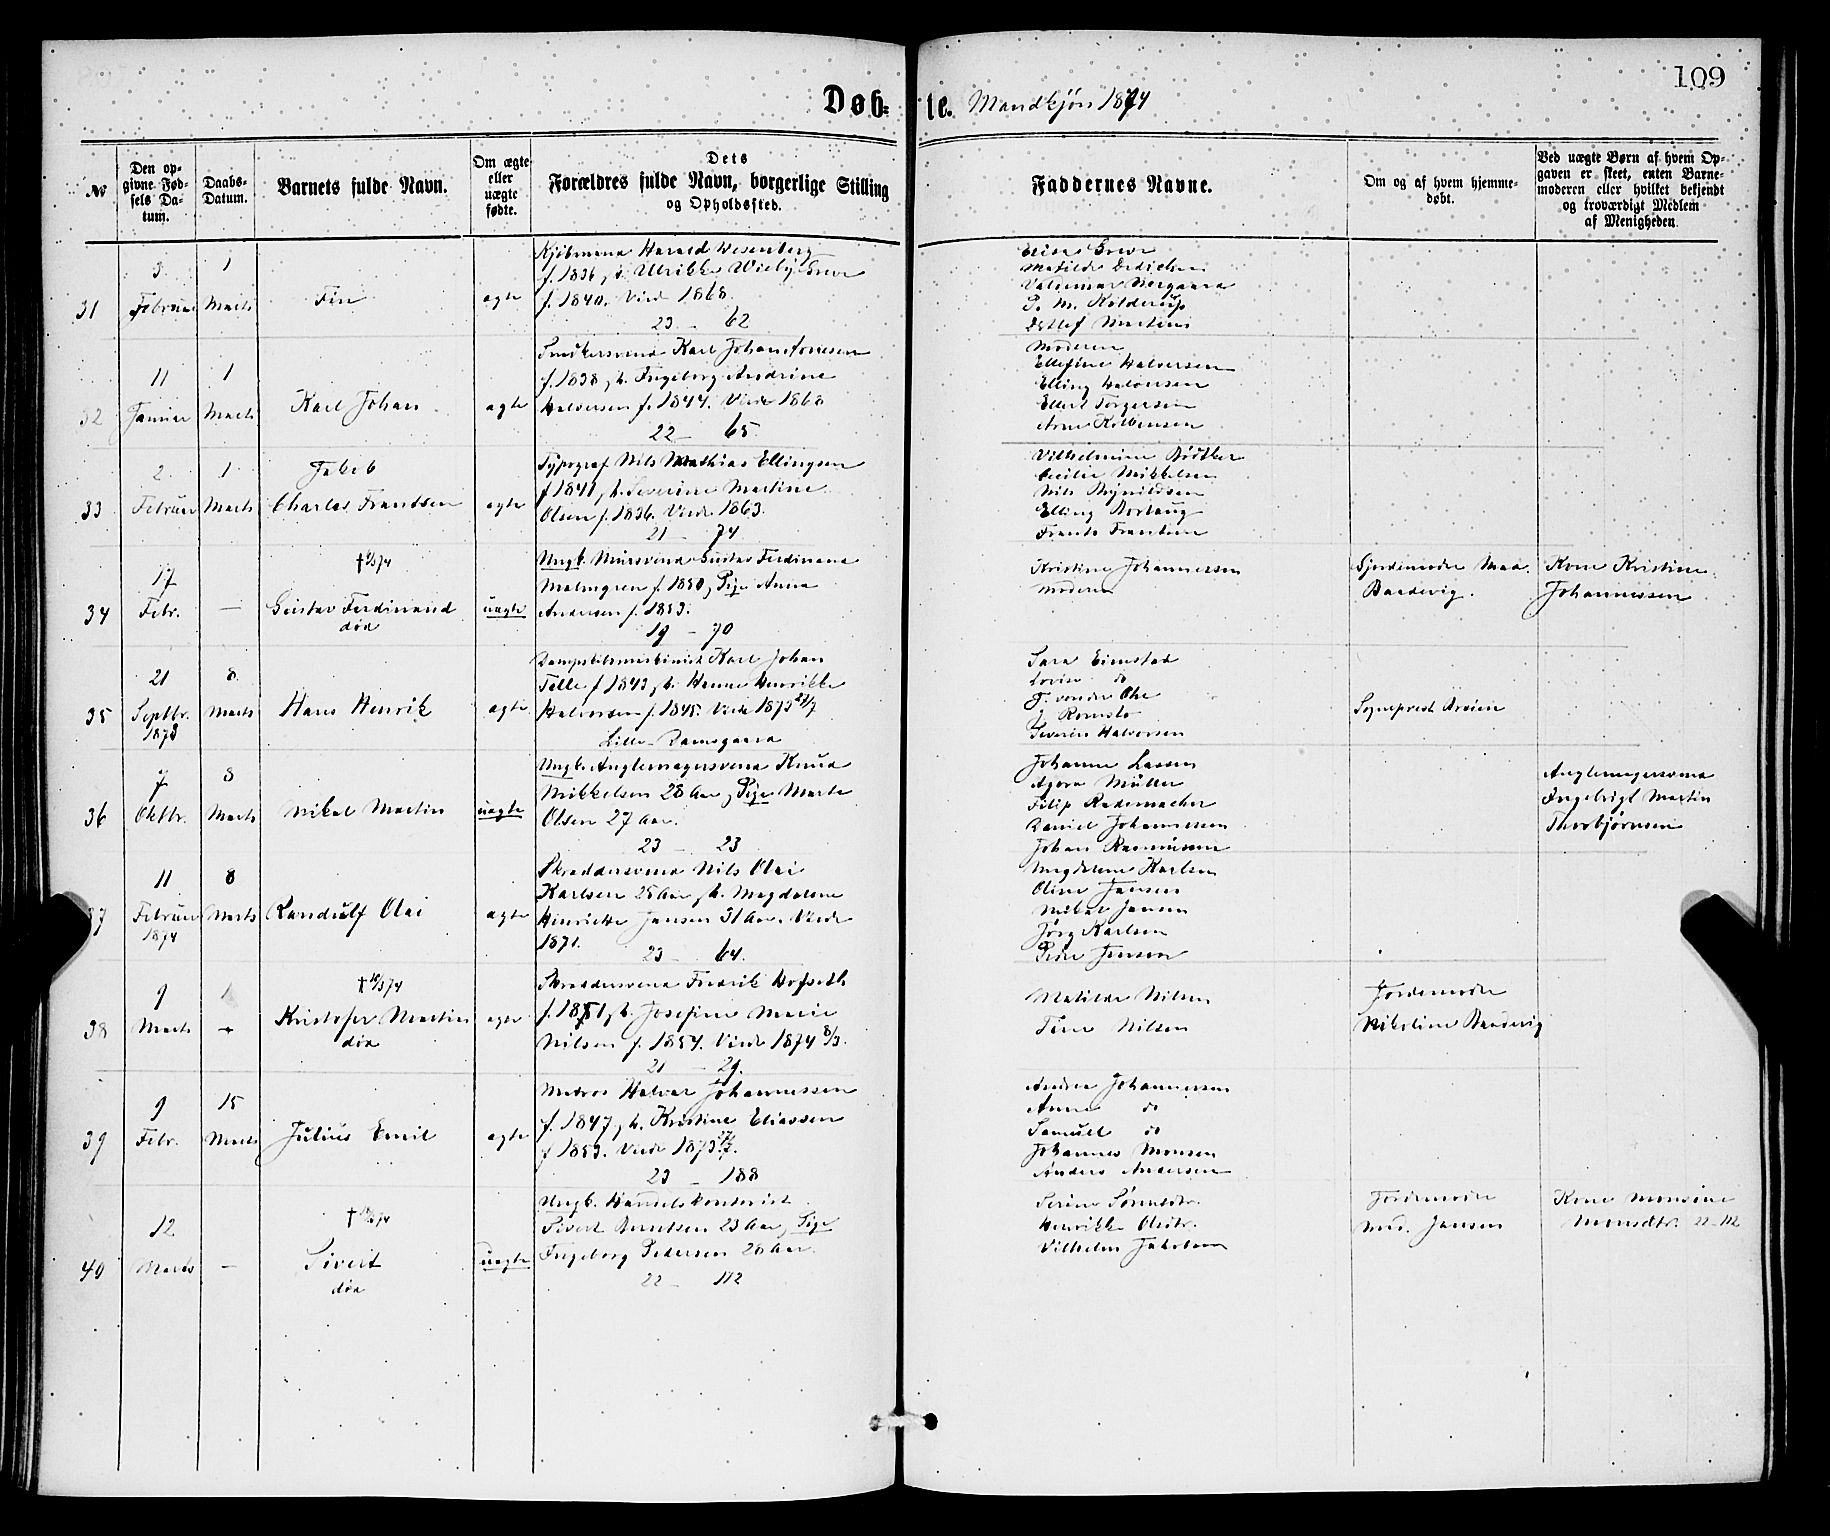 109
Døb- te. Mandkjøn 1874
No
Den op-
givne Fød-
sels Da-
tum.
Daabs-
Datum.
Barnets fulde Navn.
Om ægte
eller
uægte
fødte.
Dets
Forældres fulde Navn, borgerlige Stilling
og Opholdssted.
Faddernes Navne.
Om og af hvem hjemme-
døbt.
Ved uægte Børn af hvem Op-
gaven er skeet, enten Barne-
moderen eller hvilket bekjendt
og troværdigt Medlem
af Menigheden.
31
3
Februar
1
Marts
Fin
ægte
Kjøbmand Harald Wesenberg
f. 1836, h. Ulrikke Wieby Greve
f. 1840. Viede 1868.
23 - 62
Elise Greve
Matilde Dedichen
Valdemar Norgaard
P. M. Kolderup
Detlef Martens
32
11
Januar
1
Marts
Karl Johan
ægte
Snedkersvend Karl Johan
f. 1838, h. Ingeborg Andrine
Halvorsen f. 1844. Viede 1868
22 - 65
Moderen
Ellefine Halvorsen
Elling Halvorsen
Ellert Torgersen
Arne
33
2
Februar
1
Marts
Jakob
Charles Frantsen
ægte
Typograf Nils Mathias Ellingsen
f 1841, h. Severine Martine
Olsen f. 1836. Viede 1863.
21 - 74
Vilhelmine Bødtker
Cecilie Mikkelsen
Nils Brynildsen
Elling
Frants Frantsen
34
17
Febr.
-
†
Gustav Ferdinand
død
uægte
Ungk. Mursvend Gustav Ferdinand
Malmgren f. 1850, Pige Anna
Andersen f. 1853.
19 - 70
Kristine Johannessen
Moderen
Gjordemoder Mad.
Baadevig.
Kone Kristine
Johannessen
35
21
Septbr.
1873
8
Marts
Hans Henrik
ægte
Karl Johan
Telle f 1843, h. Hanne Henrikke
Halvorsen f. 1845. Viede 1873 27/7
Lille-Damsgaard
Sara Eimstad
Lovise do
J. von der Ohe
J.
Severin Halvorsen
Sogneprest
36
7
Oktbr.
8
Marts
Mikal Martin
uægte
Ungk. Anglemagersvend Knud
Mikkelsen 28 Aar, Pige Marte
Olsen 27 Aar.
23 - 23
Johanne Lassen
Agora Müller
Filip Rademacher
Daniel Johannessen
Johan Rasmussen
Anglemagersvend
Ingebrigt Martin
Thorbjørnsen
37
11
Februar
1874
8
Marts
Randulf Olai
ægte
Skræddersvend Nils Olai
Karlsen 25 Aar, h. Magdalene
Henriette Jansen 31 Aar. Viede
1871.
23 - 64.
Magdalene Karlsen
Oline Jansen
Mikal Jansen
Jørg Karlsen
Peder Jensen
38
9
Marts
-
†
Kristofer Martin
død
ægte
Skræddersvend Fredrik Hofseth
f. 1851, h. Josefine Marie
Nilsen f. 1854. Viede 1874 8/3.
21 - 29.
Matilde Nilsen
Tine Nilsen
Jordemoder
Nikoline Baadevig
39
9
Febr.
15
Marts
Julius Emil
ægte
Matros Halvor Johannessen
f. 1847, h. Kristine Eliassen
f 1853. Viede 1873
23 - 188
Andrea Johannessen
Anna do
Samuel do
Johannes Monsen
Anders Andersen
40
12
Marts
-
†
Sivert
død
uægte
Ungk. Handelskontorist
Sivert Berntsen 23 Aar, Pige
Ingeborg Pedersen 28 Aar.
22 - 112
Serine
Henrikke Olsdtr.
Vilhelm Jakobsen
Jordemoder
Mad. Jansen
Kone Monsine
Monsdtr. 22-112